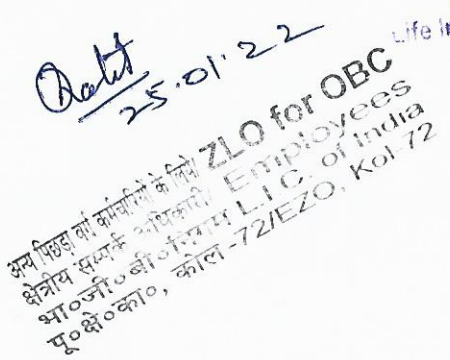 25.01.22
Life I
अन्य पिछड़ा वर्ग कर्मचारियों के लिये/ ZLO for OBC
क्षेत्रीय सम्पर्क अधिकारी/ Employees
भा०जी०बी०निगम L.I.C. of India
पू०क्षे०का०, कोल-72/EZO, Kol-72